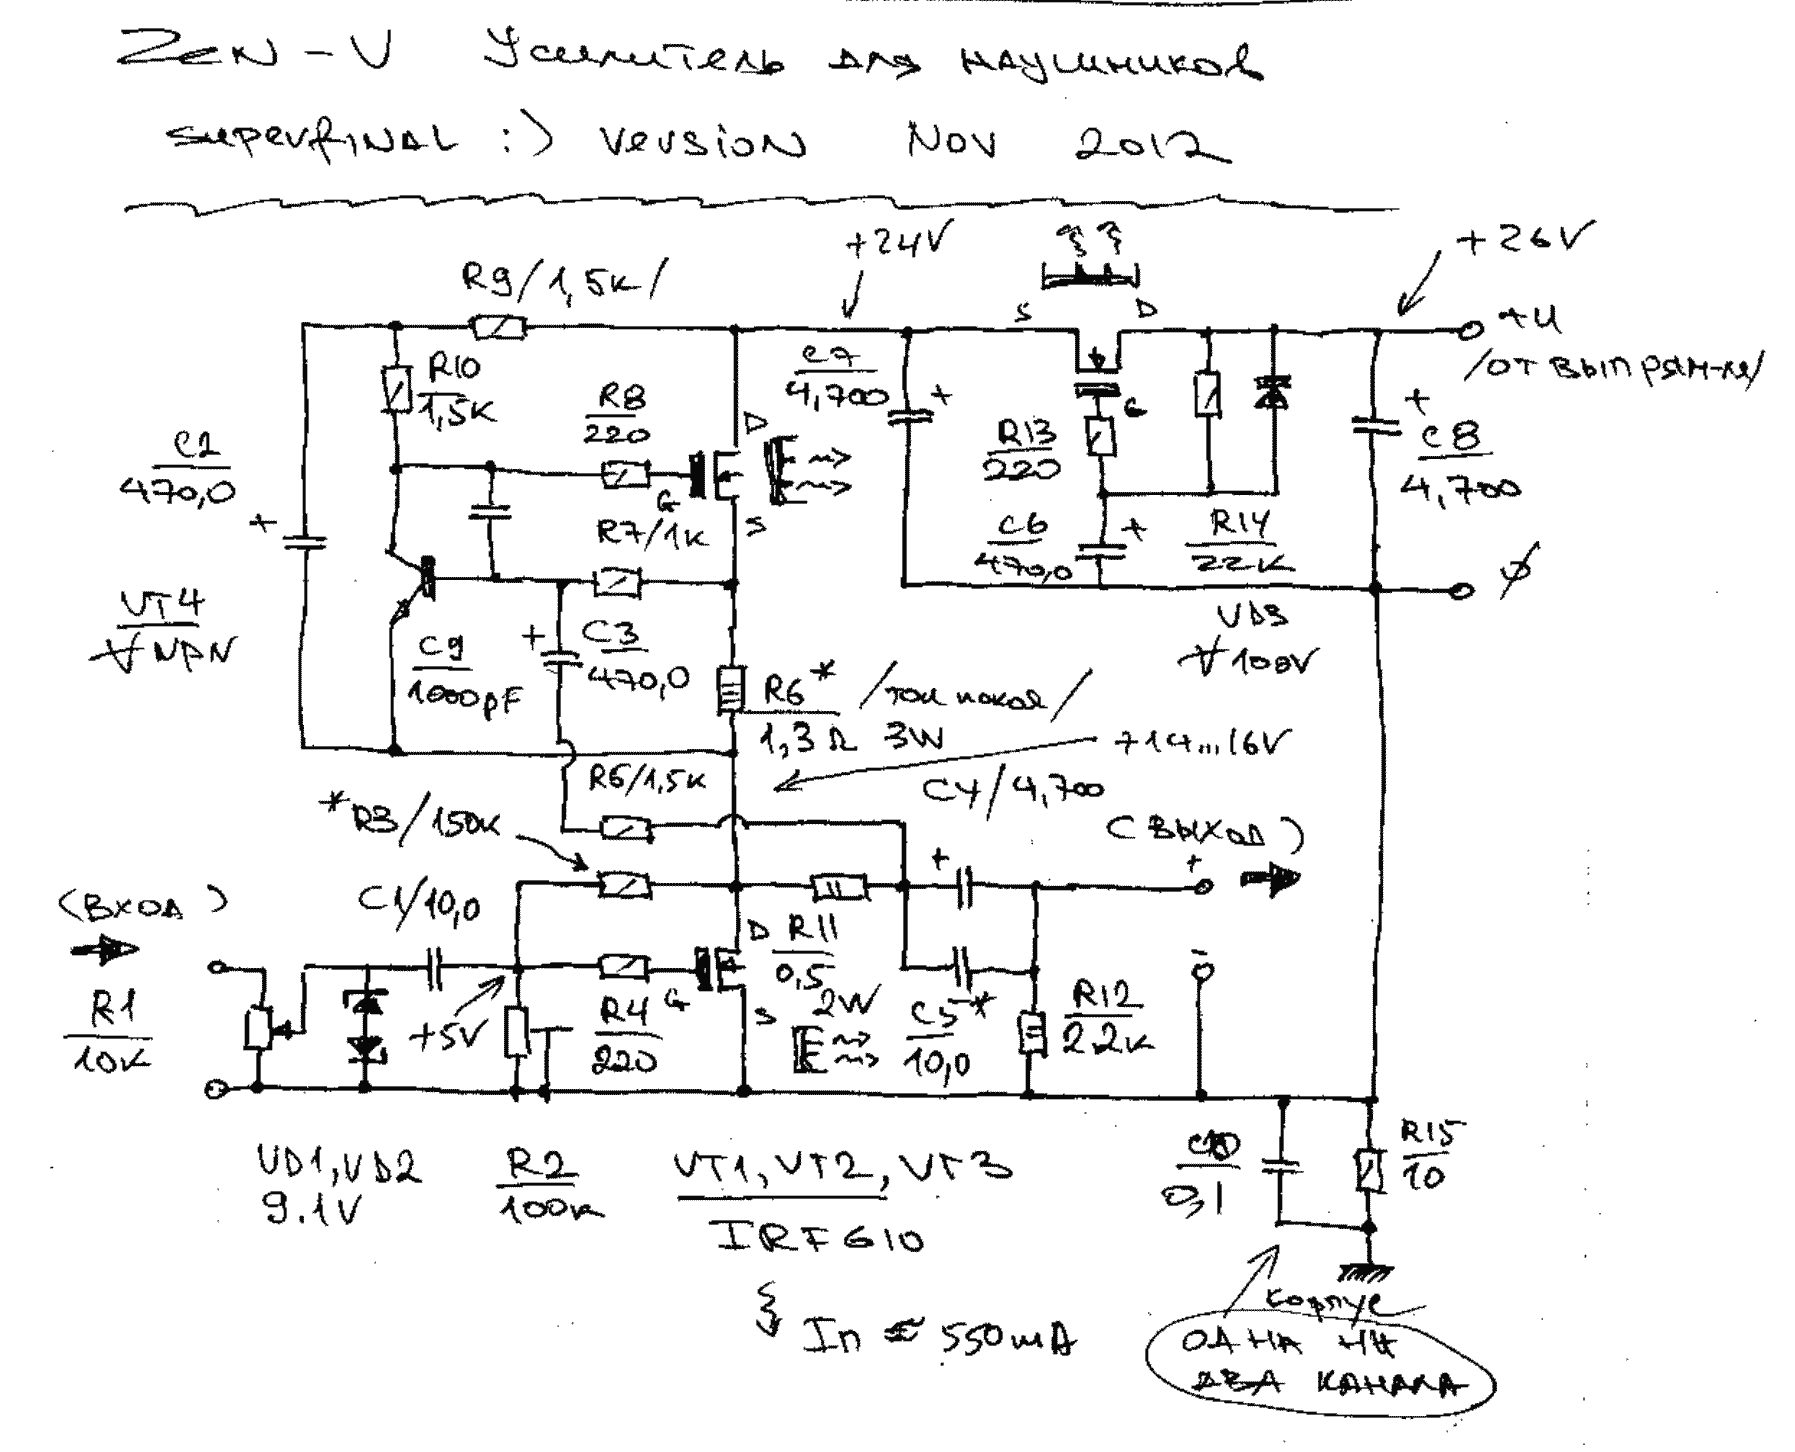 ZEN-V Усилитель для наушников
superfINAL :) version Nov 2012
+24V
+26V
R9/1,5к/
S
D
+U
/от выпрям-ля/
R10
1,5K
C7
4,700
+
R8
220
D
G
R13
220
+
C8
4,700
C2
470,0
+
G
S
R7/1к
C6
470,0
+
R14
22K
VT4
∀ NPN
C9
1000pF
+
C3
470,0
VD3
∀ 100V
R6*
1,3Ω 3W
/ток покоя/
+14...16V
R5/1,5к
C4/4,700
*R3/150к
(выход)
+
+
(вход)
C1/10,0
D
R11
0,5
2W
-
R1
10к
+5V
R4
220
G
S
C5*
10,0
R12
2.2к
VD1, VD2
9.1V
R2
100к
VT1, VT2, VT3
IRF610
C10
0,1
R15
10
Iп ≈ 550mA
корпус
ОДНА НА
ДВА КАНАЛА